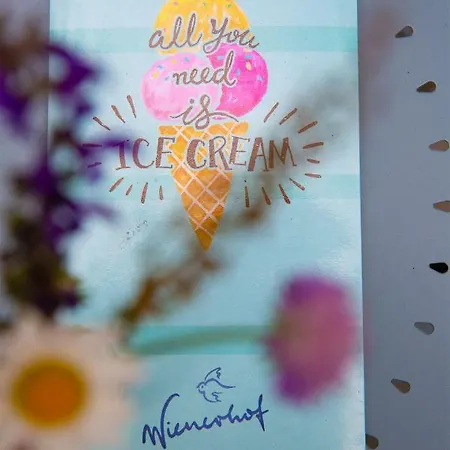 all you
need
is
ICE CREAM
Wienerhof